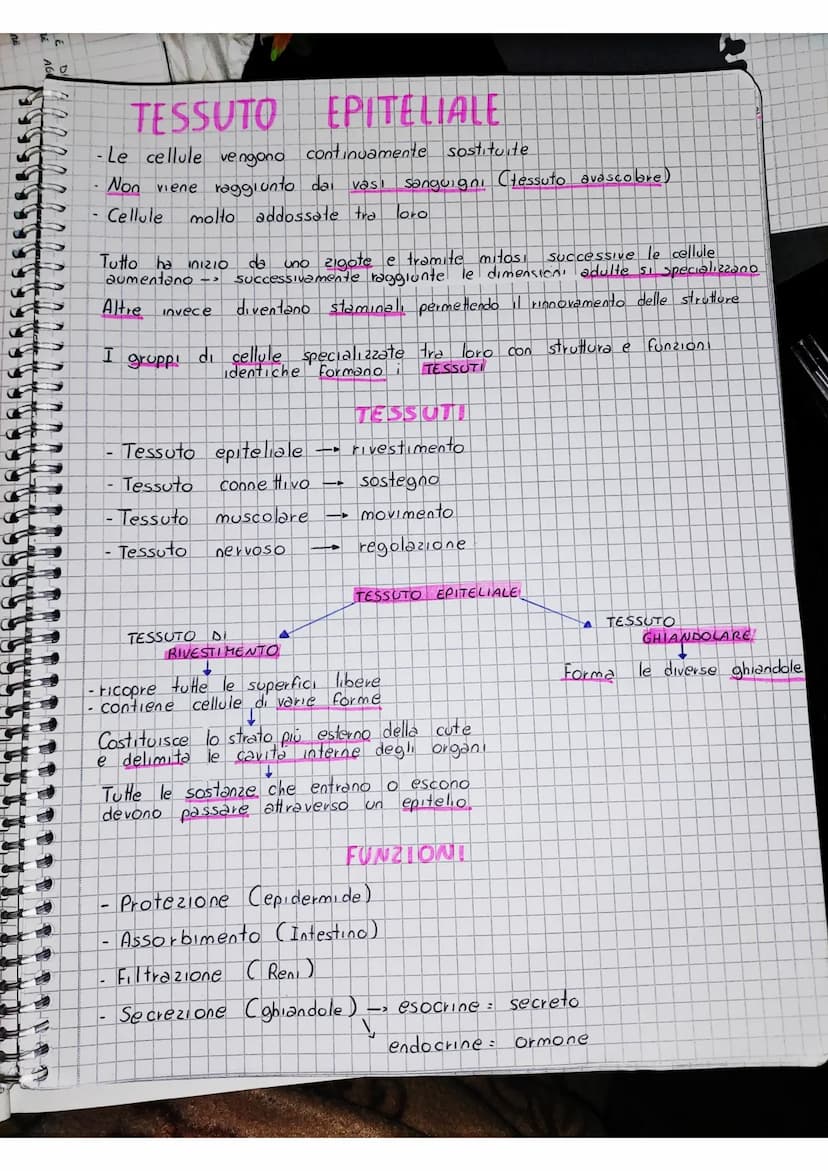 TESSUTO EPITELIALE
- Le cellule vengono continuamente sostituite
- Non viene raggiunto dai vasi sanguigni (tessuto avascolare)
- Cellule molto addossate tra loro
Tutto ha inizio da uno zigote e tramite mitosi successive le cellule
aumentano --> successivamente raggiunte le dimensioni adulte si specializzano
Altre invece diventano staminali permettendo il rinnovamento delle strutture
I gruppi di cellule specializzate tra loro con struttura e funzioni
identiche formano i TESSUTI
TESSUTI
- Tessuto epiteliale → rivestimento
- Tessuto connettivo → sostegno
- Tessuto muscolare → movimento
- Tessuto nervoso → regolazione
TESSUTO EPITELIALE
TESSUTO DI
RIVESTIMENTO
- ricopre tutte le superfici libere
- contiene cellule di varie forme
Costituisce lo strato più esterno della cute
e delimita le cavità interne degli organi
Tutte le sostanze che entrano o escono
devono passare attraverso un epitelio
TESSUTO
GHIANDOLARE
Forma le diverse ghiandole
FUNZIONI
- Protezione (epidermide)
- Assorbimento (Intestino)
- Filtrazione (Reni)
- Secrezione (ghiandole) → esocrine = secreto
endocrine = ormone